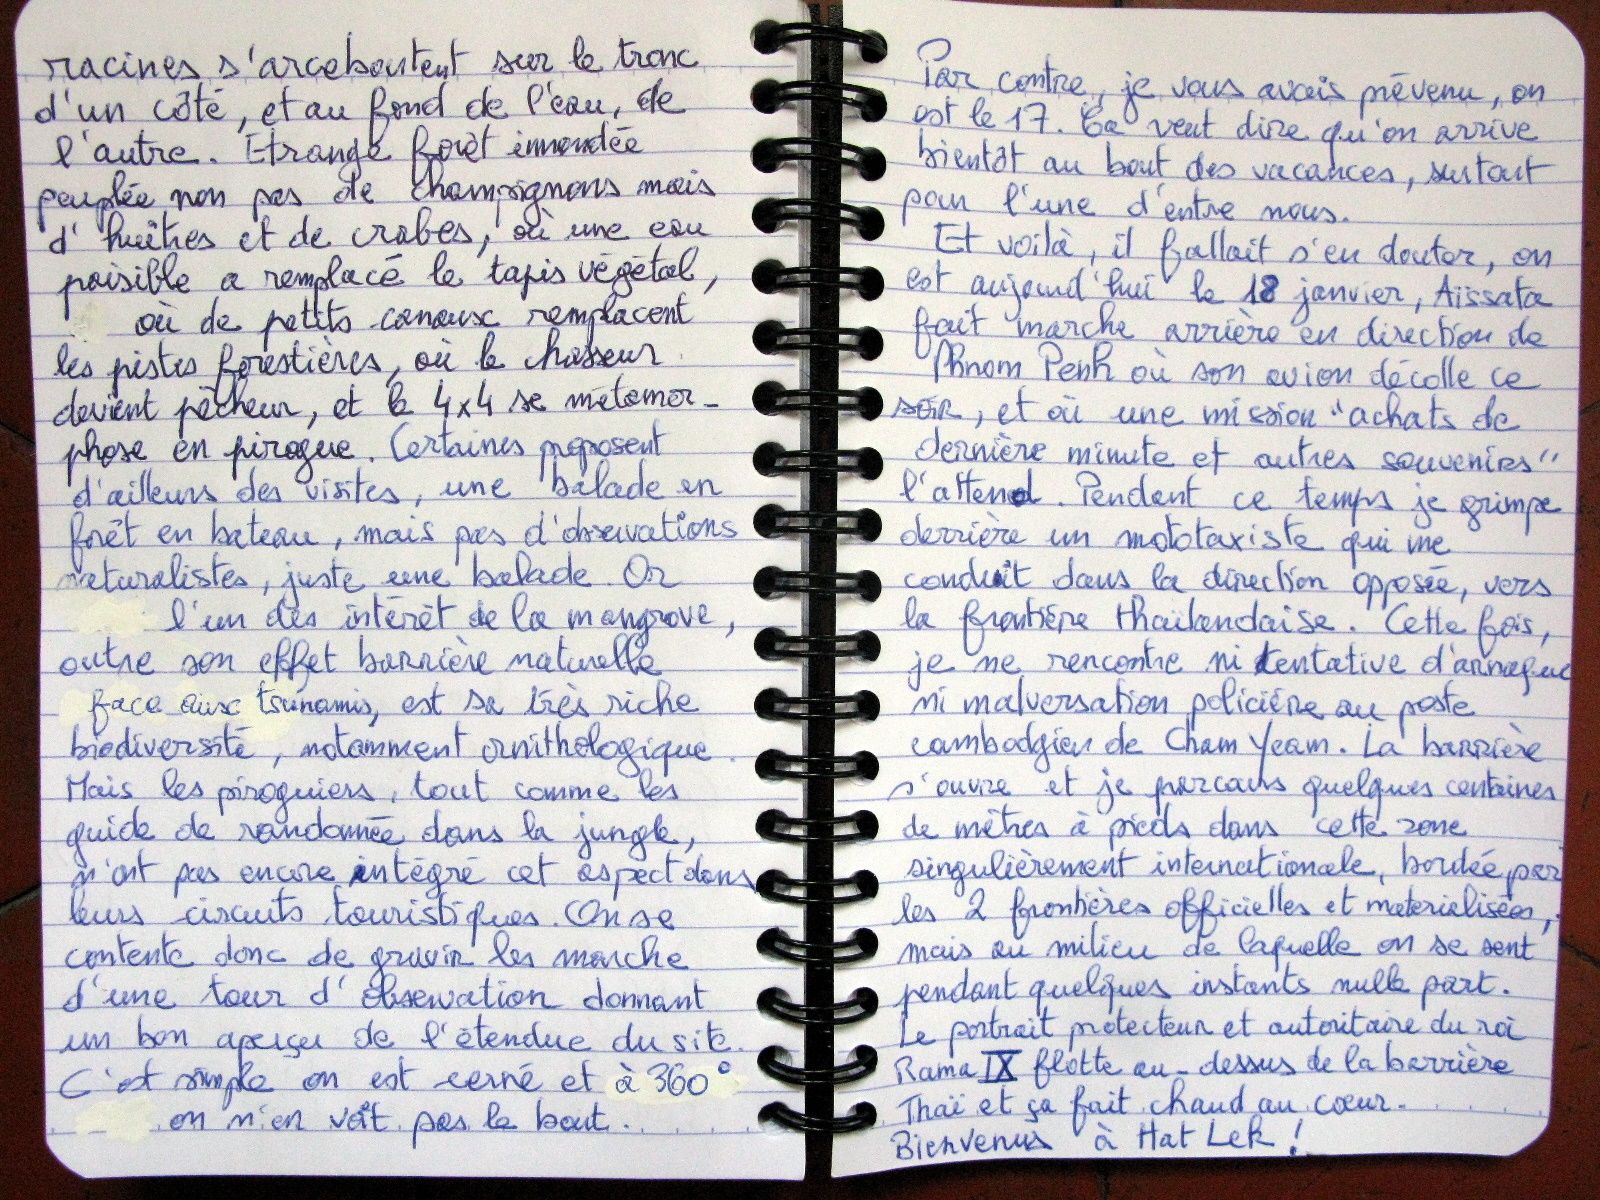 racines s'arceboutent sur le tronc
d'un côté, et au fond de l'eau, de
l'autre. Etrange forêt innondée
peuplée non pas de champignons mais
d'huîtres et de crabes, où une eau
paisible a remplacé le tapis végétal,
où de petits canaux remplacent
les pistes forestières, où le chasseur
devient pêcheur, et le 4x4 se métamor-
phose en pirogue. Certaines proposent
d'ailleurs des visites, une balade en
forêt en bateau, mais pas d'observations
naturalistes, juste une balade. Or
l'un des intérêt de la mangrove,
outre son effet barrière naturelle
face aux tsunamis, est sa très riche
biodiversité, notamment ornithologique.
Mais les piroguiers, tout comme les
guide de randonnée dans la jungle,
n'ont pas encore intégré cet aspect dans
leurs circuits touristiques. On se
contente donc de gravir les marche
d'une tour d'observation donnant
un bon aperçu de l'étendue du site.
C'est simple on est cerné et à 360°
on n'en voit pas le bout.
Par contre, je vous avais prévenu, on
est le 17. Ça veut dire qu'on arrive
bientôt au bout des vacances, surtout
pour l'une d'entre nous.
Et voilà, il fallait s'en douter, on
est aujourd'hui le 18 janvier, Aissata
fait marche arrière en direction de
Phnom Penh où son avion décolle ce
soir, et où une mission "achats de
dernière minute et autres souvenirs"
l'attend. Pendant ce temps je grimpe
derrière un mototaxiste qui me
conduit dans la direction opposée, vers
la frontière thaïlandaise. Cette fois,
je ne rencontre ni tentative d'arnaque
ni malversation policière au poste
cambodgien de Cham Yeam. La barrière
s'ouvre et je parcours quelques centaines
de mètres à pieds dans cette zone
singulièrement internationale, bordée par
les 2 frontières officielles et materialisées,
mais au milieu de laquelle on se sent
pendant quelques instants nulle part.
Le portrait protecteur et autoritaire du roi
Rama IX flotte au-dessus de la barrière
Thaï et ça fait chaud au cœur.
Bienvenus à Hat Lek !